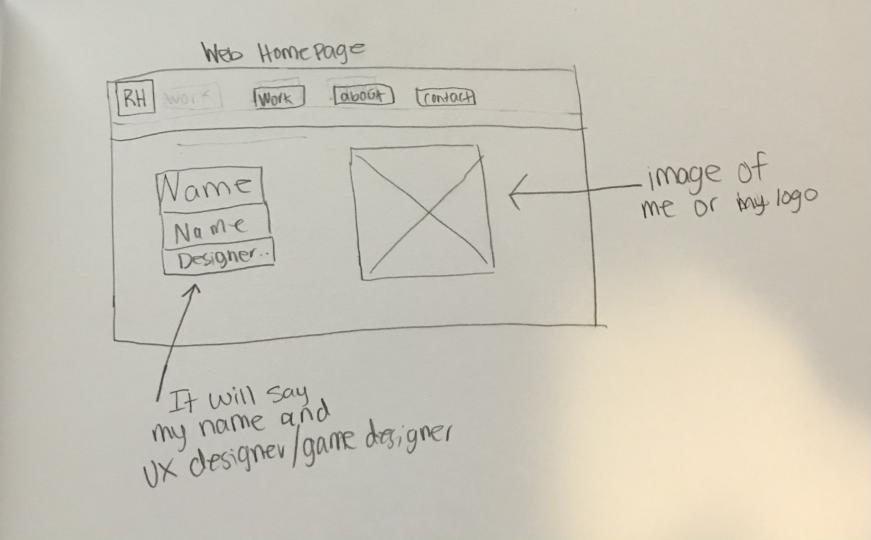 Web HomePage
RH Work Work about contact
Name
Name
Designer..
image of
me or my logo
It will say
my name and
UX designer/game designer